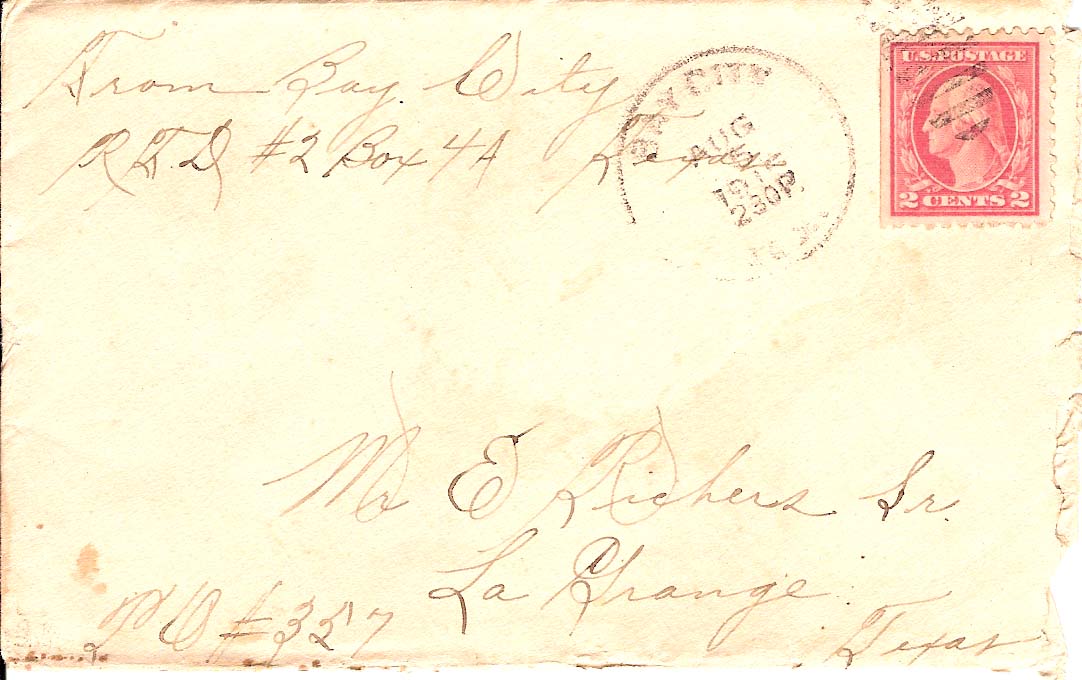 From Bay City
R.F.D #2 Box 4A Texas
BAY CITY
AUG
230P
TEX.
U.S. POSTAGE
2 CENTS 2
Mr E Richers Sr.
La Grange
PO #357
Texas